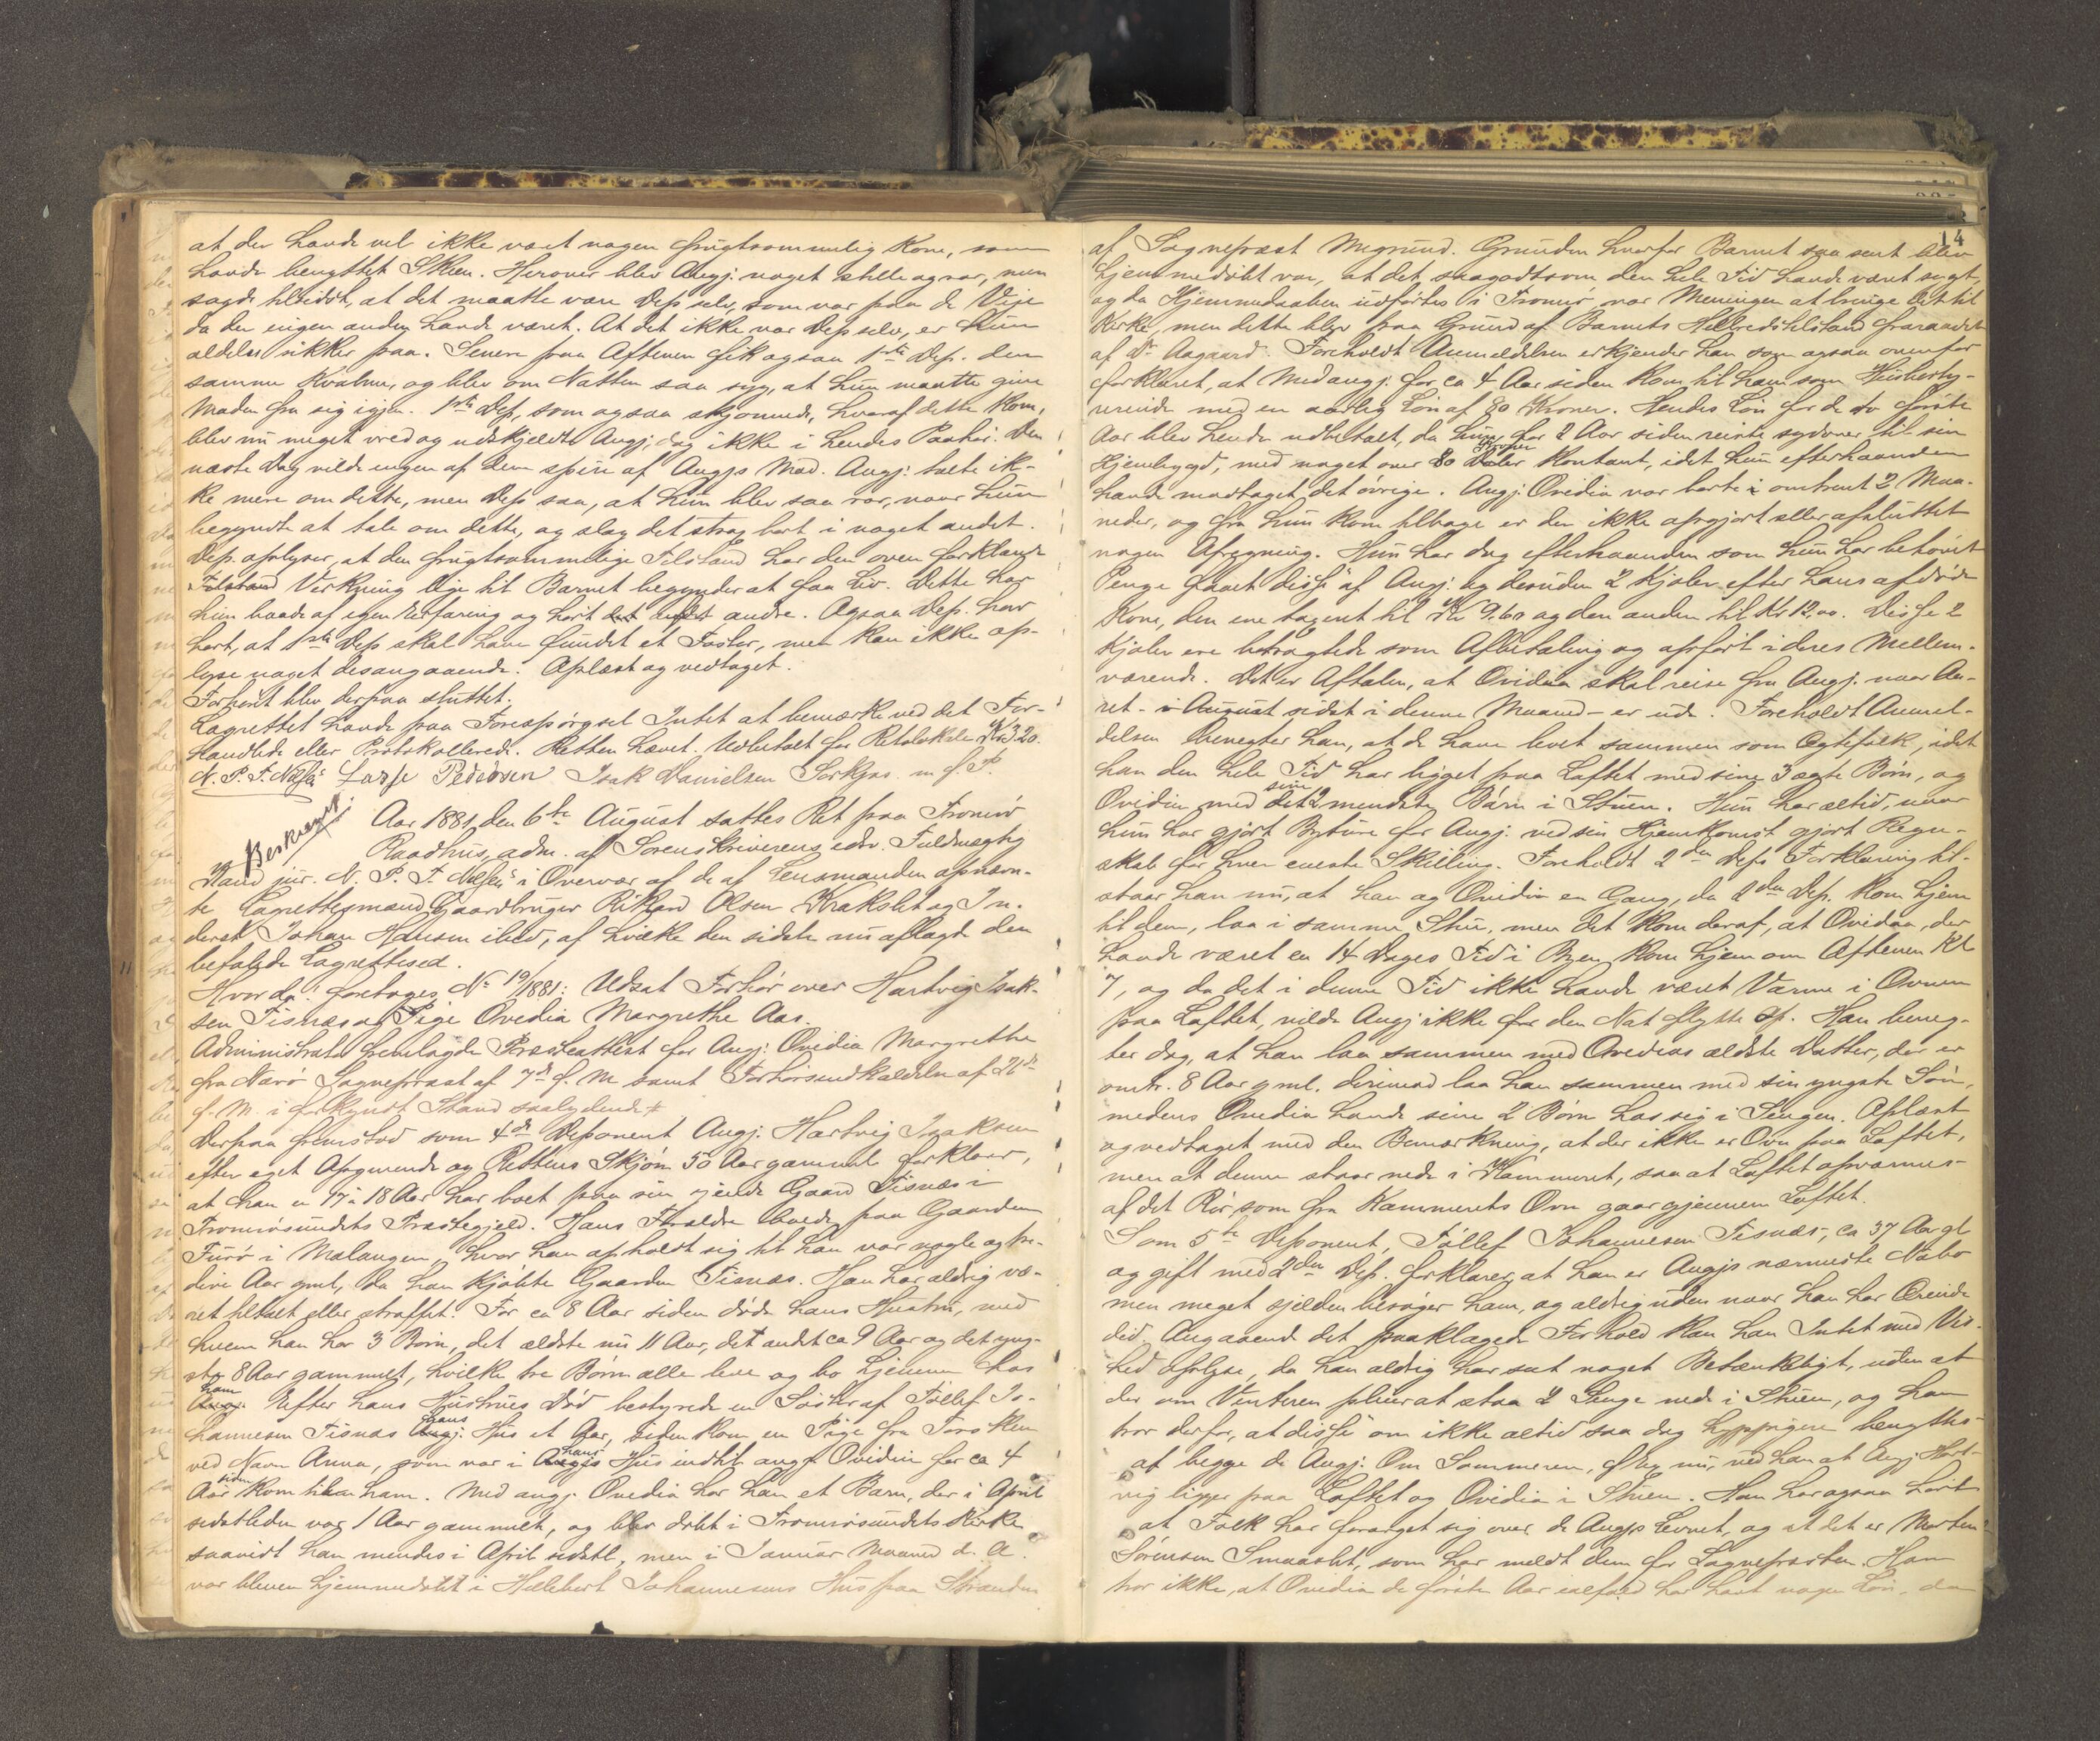 at der havde vel ikke været nogen frugtsommelig Kone, som
havde benyttet Skeen. Herover blev Angj. noget stille og rar, men
sagde tilsidst, at det maatte være Dep. selv, som var paa de Veje
da der ingen anden havde været. At det ikke var Dep. selv, er hun
aldeles sikker paa. Senere paa Aftenen fik ogsaa 1ste Dep. den
samme Kvalme, og blev om Natten saa syg, at hun maatte give
Maden fra sig igjen. 1ste Dep., som ogsaa skjønnede, hvoraf dette kom,
blev nu meget vred og udskjeldte Angj., dog ikke i hendes Paahør. Den
næste Dag vilde ingen af dem spise af Angjs Mad. Angj. talte ik-
ke mere om dette, men Dep. saa, at hun blev saa rar, naar hun
begyndte at tale om dette, og slog det strax bort i noget andet.
Dep. oplyser, at den frugtsommelige Tilstand har den oven forklarede
Tilstand Virkning lige til Barnet begynder at faa Liv. Dette har
hun baade af egen Erfaring og hørt det af andre. Ogsaa Dep. har
hørt, at 1ste Dep. skal have fundet et Foster, men kan ikke op-
lyse noget desangaaende. Oplæst og vedtaget.
Forhøret blev derpaa sluttet.
Lagrettet havde paa Forespørgsel Intet at bemærke ved det For-
handlede eller Protokollerede. Retten hævet. Udbetalt for Retslokale Kr 3.20.
N. P. F. Lasse Pedersen Isak Danielsen m. f. P.
Beskrevet
Aar 1881, den 6te August sattes Ret paa Tromsø
Raadhus, adm. af Sorenskriverens edsv. Fuldmægtig
Kand. jur. N. P. F. i Overvær af de af Lensmanden opnævn-
te Lagrettesmænd Gaardbruger Rikard Olsen Krakslet og In-
derst Johan Hansen ibid, af hvilke den sidste nu aflagde den
befalede Lagrettesed.
Hvorda: foretoges No 19/1881: Udsat Forhør over Hartvig Isak-
sen Tisnæs og Pige Ovedia Margrethe Aas.
Administrator fremlagde Præsteattest for Angj. Ovidia Margrethe
fra Nærø Sogneprest af 7de f. M. samt Forhørsindkaldelse af 26de
f. M. i forkyndt Stand saalydende #
Derpaa fremstod som 4de Deponent Angj. Hartvig Isaksen
efter eget Opgivende og Rettens Skjøn 50 Aar gammel forklarer,
at han er 17 à 18 Aar har boet paa sin ejende Gaard Tisnæs i
Tromsøsundets Præstegjeld. Hans Forældre boede paa Gaarden
Furø i Malangen, hvor han opholdt sig til han var nogle og tre-
dive Aar gml., da han kjøbte Gaarden Tisnæs. Han har aldrig væ-
ret tiltalt eller straffet. For ca 8 Aar siden døde hans Hustru, med
hvem han har 3 Børn, det ældste nu 11 Aar, det andet ca 9 Aar og det yng-
ste 8 Aar gammelt, hvilke tre Børn alle leve og bo hjemme hos
ham
Angj. Efter hans Hustrues Død bestyrede en Søster af Tollef Jo-
hannesen Tisnæs hans Angj. Hus et Aar, siden kom en Pige fra Torsken
ved Navn Anna, som var i hans Angjs Hus indtil angj. Ovidia for ca 4
Aar siden kom til ham. Med angj. Ovedia har han et Barn, der i April
sidstleden var 1 Aar gammelt, og blev døbt i Tromsøsundets Kirke
saavidt han mindes i April sidstl., men i Januar Maaned d. A.
var bleven hjemmedøbt i Hellebert Johannesens Hus paa Stranden
14
af Sogneprest Megrund. Grunden hvorfor Barnet saa sent blev
hjemmedøbt var, at det saagodtsom den hele Tid havde været sygt,
og da Hjemmedaaben udførtes i Tromsø, var Meningen at bringe det til
Kirke, men dette blev paa Grund af Barnets Helbredstilstand fraraadet
af Dr Aagaard. Foreholdt Anmeldelsen erkjender han som ogsaa ovenfor
forklaret, at Medangj. for ca 4 Aar siden kom til ham som Husbesty-
rerinde med en aarlig Løn af 80 Kroner. Hendes Løn for de to første
Aar blev hende udbetalt, da hun for 2 Aar siden reiste sydover til sin
Hjembygd, med noget over 80 Kroner Daler kontant, idet hun efterhaanden
havde modtaget det øvrige. Angj. Ovidia var borte i omtrent 2 Maa-
neder, og fra hun kom tilbage er der ikke opgjort eller afsluttet
nogen Afregning. Hun har dog efterhaanden som hun har behøvet
Penge faaet disse af Angj. og desuden 2 Kjoler efter hans afdøde
Kone, den ene taxeret til Kr 9,60 og den anden til Kr 12,00. Disse 2
Kjoler ere betragtede som Afbetaling og opført i deres Mellem-
værende. Det er Aftalen, at Ovidia skal reise fra Angj. naar Aa-
ret - i August sidst i denne Maaned - er ude. Foreholdt Anmel-
delsen benegter han, at de have levet sammen som Ægtefolk, idet
han den hele Tid har ligget paa Loftet med sine 3 ægte Børn, og
Ovidia med sine det 2 mindste Børn i Stuen. Hun har altid, naar
hun har gjort Byture for Angj. ved sin Hjemkomst gjort Regn-
skab for hver eneste Skilling. Foreholdt 2den Deps Forklaring til-
staar han nu, at han og Ovidia en Gang, da 2den Dep. kom hjem
til dem, laa i samme Stue, men det kom deraf, at Ovidia, der
havde været en 14 Dages Tid i Byen, kom hjem om Aftenen Kl
7, og da det i denne Tid ikke havde været Varme i Ovnen
paa Loftet, vilde Angj. ikke for den Nat flytte op. Han beneg-
ter dog, at han laa sammen med Ovedias ældste Datter, der er
omtr. 8 Aar gml. derimod laa han sammen med sin yngste Søn,
medens Ovedia havde sine 2 Børn hos sig i Sengen. Oplæst
og vedtaget med den Bemærkning, at der ikke er Ovn paa Loftet,
men at denne staar nede i Kammeret, saa at Loftet opvarmes
af det Rør, som fra Kammerets Ovn gaar gjennem Loftet.
Som 5te Deponent, Tollef Johannesen Tisnæs, ca 37 Aar gl.
og gift med 2den Dep. forklarer, at han er Angjs nærmeste Nabo
men meget sjelden besøger ham, og aldrig uden naar han har Ærinde
did. Angaaende det paaklagede Forhold kan han Intet med Vis-
hed oplyse, da han aldrig har set noget Betænkeligt, uden at
der om Vinteren pleier at staa 2 Senge nede i Stuen, og han
tror derfor, at disse om ikke altid saa dog hyppigere benyttes
af begge de Angj. Om Sommeren, og nu, ved han at Angj. Hart-
vig ligger paa Loftet og Ovidia i Stuen. Han har ogsaa hørt
at Folk har forarget sig over de Angjs Levnet, og at det er Morten
Sørensen Smaaslet, som har meldt dem for Sognepresten. Han
tror ikke, at Ovidia de første Aar ialfald har havt nogen Løn, da